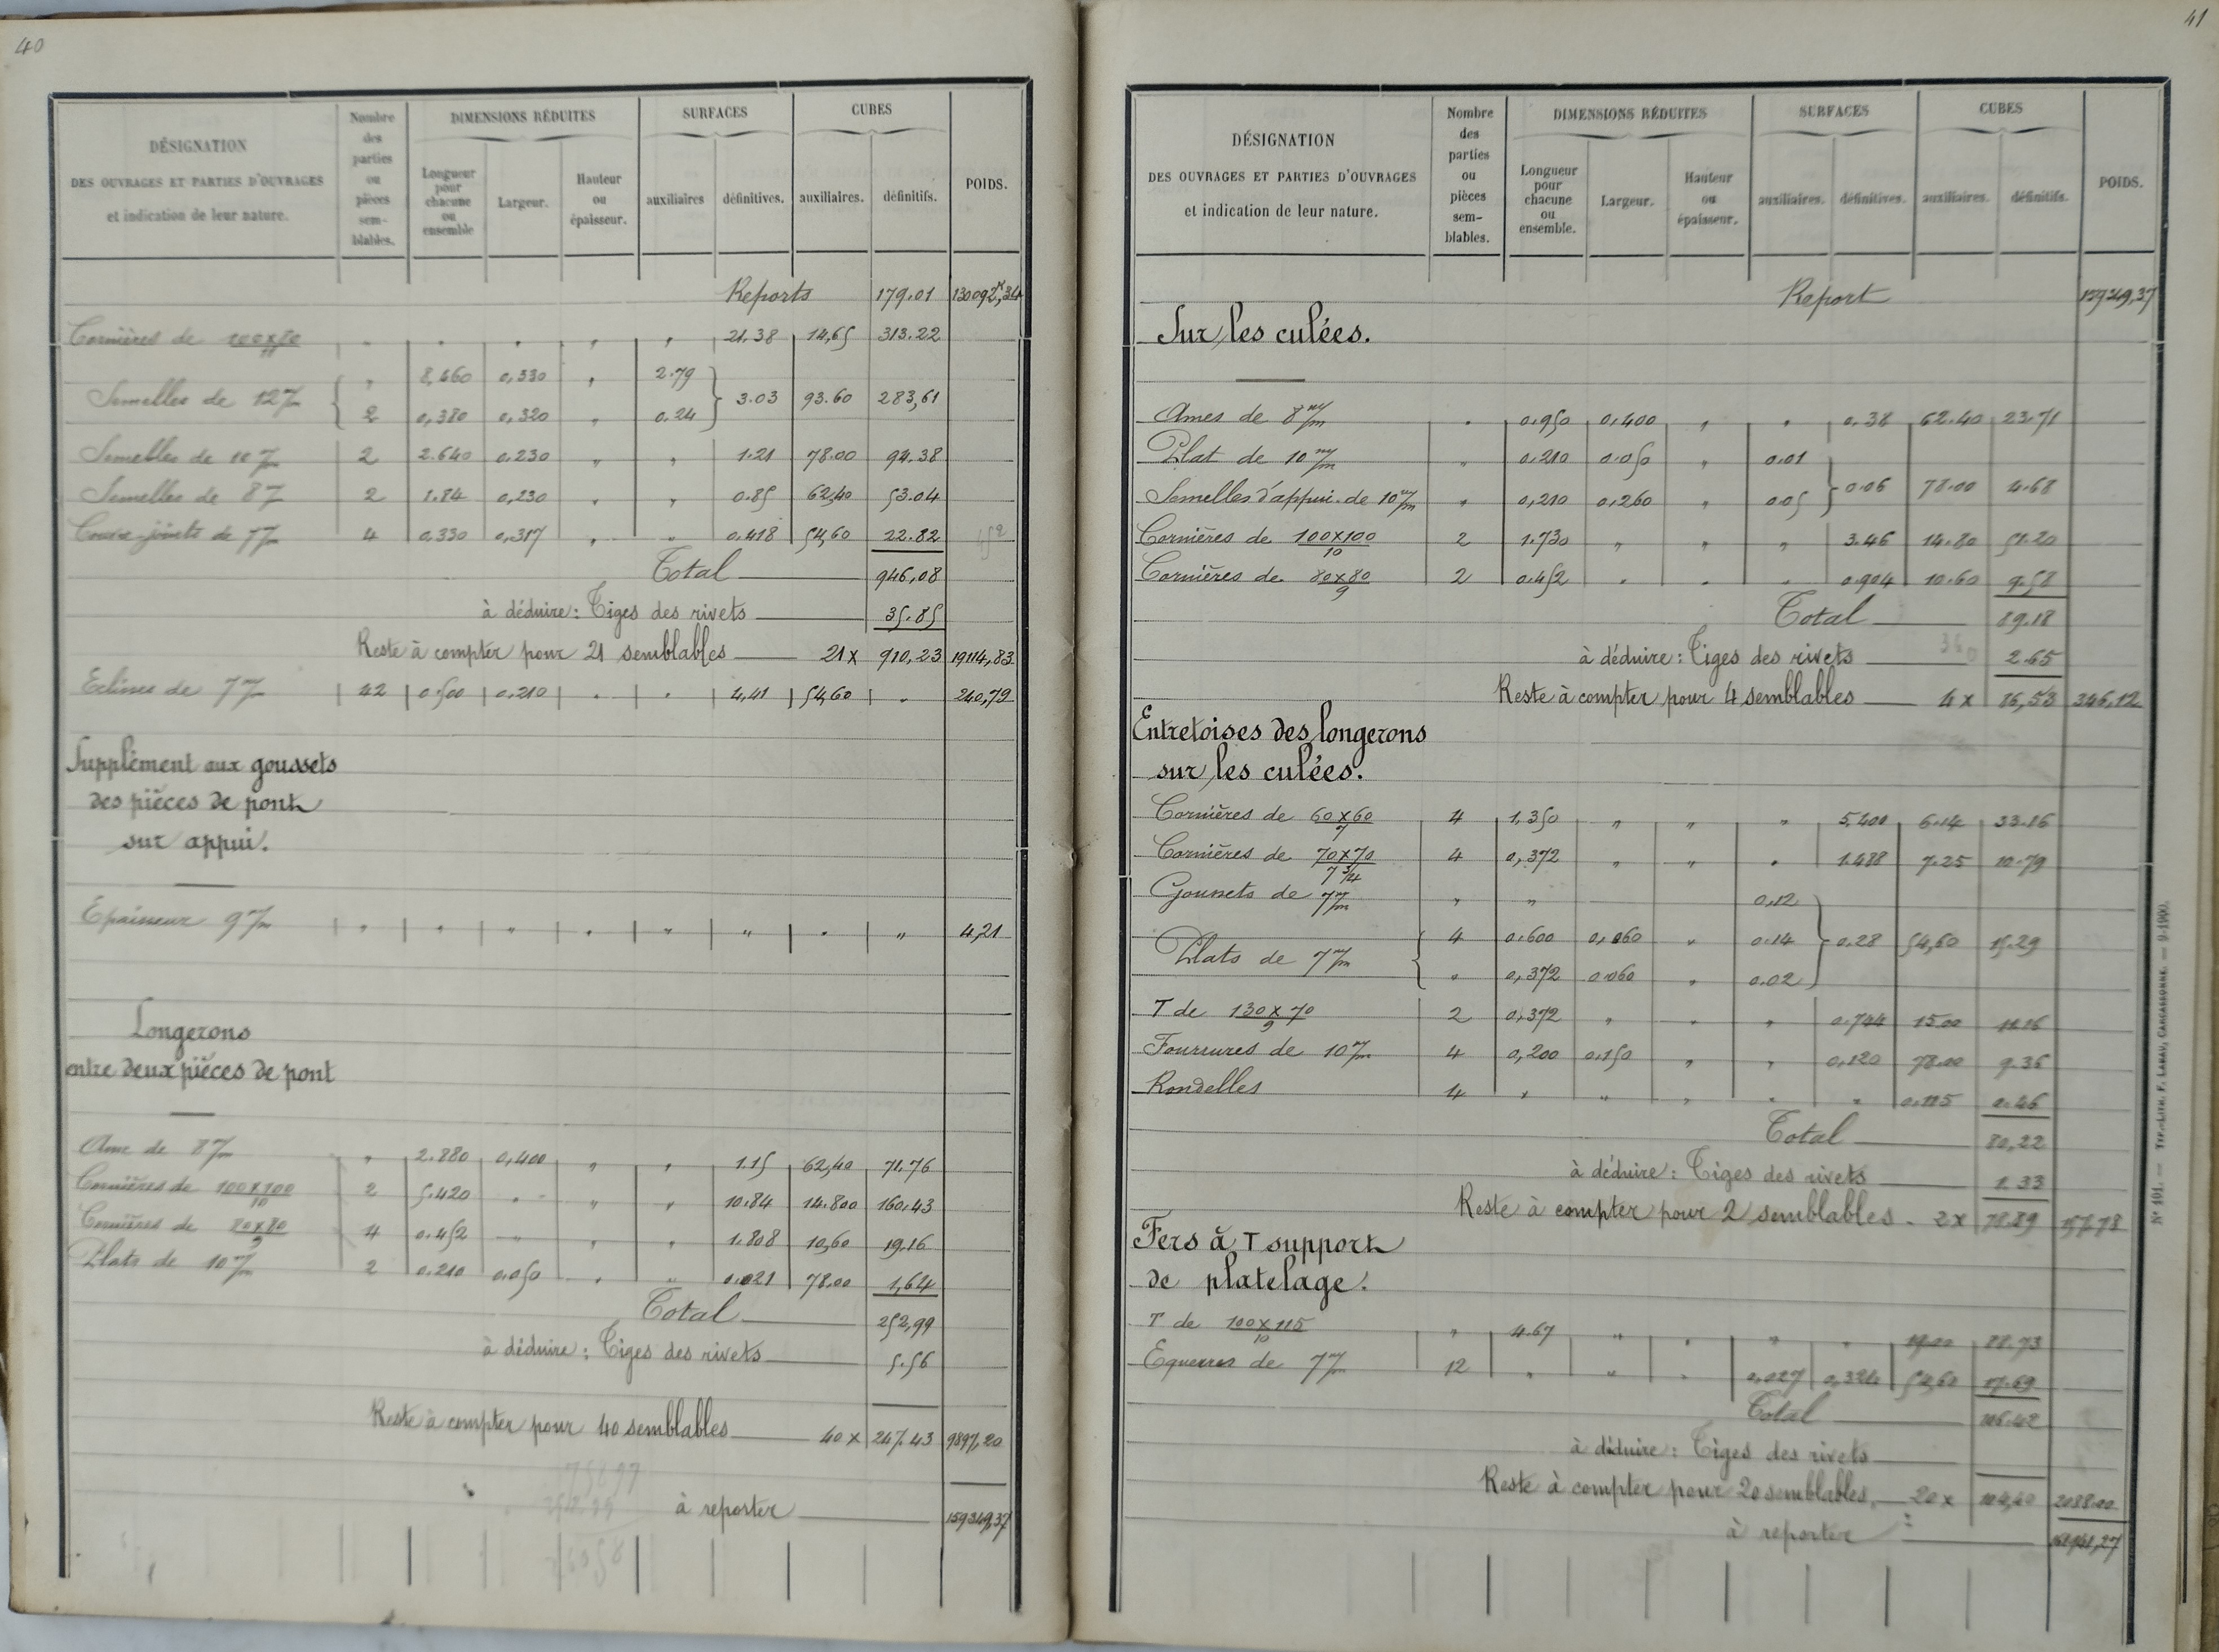 40
DÉSIGNATION
DES OUVRAGES ET PARTIES D'OUVRAGES
et indication de leur nature.
Nombre des parties ou pièces sem-blables.
DIMENSIONS RÉDUITES
Longueur pour chacune ou ensemble
Largeur.
Hauteur ou épaisseur.
SURFACES
auxiliaires
définitives.
CUBES
auxiliaires.
définitifs.
POIDS.
Reports 179.01 130092ᵏ,34
Cornières de 100x80/11 " " " " " 21.38 14,65 313.22
Semelles de 12 m/m " 8,460 0,330 " 2.79
2 0,380 0,320 " 0.24 3.03 93.60 283,61
Semelles de 10 m/m 2 2.640 0.230 " " 1.21 78.00 94.38
Semelles de 8 m/m 2 1.84 0,230 " " 0.85 62,40 53.04
Couvre-joints de 7 m/m 4 0,330 0,317 " " 0.418 54,60 22.82
Total 946,08
à déduire : Tiges des rivets 35.85
Reste à compter pour 21 semblables 21 x 910,23 19114,83
Eclisses de 7 m/m 42 0.500 0,210 " " 4,41 54,60 " 240,79
Supplément aux goussets
des pièces de pont
sur appui.
Epaisseur 9 m/m " " " " " " " " 4,21
Longerons
entre deux pièces de pont
Ame de 8 m/m " 2.880 0,400 " " 1.15 62,40 71.76
Cornières de 100x100/10 2 5.420 " " " 10.84 14.800 160,43
Cornières de 80x80/9 4 0.452 " " " 1.808 10,60 19.16
Plats de 10 m/m 2 0.210 0.050 " " 0.021 78.00 1,64
Total 252,99
à déduire : Tiges des rivets 5.56
Reste à compter pour 40 semblables 40 x 247.43 9897,20
à reporter 159349,37
41
DÉSIGNATION
DES OUVRAGES ET PARTIES D'OUVRAGES
et indication de leur nature.
Nombre des parties ou pièces sem-blables.
DIMENSIONS RÉDUITES
Longueur pour chacune ou ensemble.
Largeur.
Hauteur ou épaisseur.
SURFACES
auxiliaires.
définitives.
CUBES
auxiliaires.
définitifs.
POIDS.
Report 159349,37
Sur les culées.
Ames de 8 m/m " 0.950 0,400 " " 0.38 62.40 23.71
Plat de 10 m/m " 0.210 0.050 " 0.01
Semelles d'appui de 10 m/m " 0,210 0,260 " 0.05 0.06 78.00 4.68
Cornières de 100x100/10 2 1.730 " " " 3.46 14.80 51.20
Cornières de 80x80/9 2 0.452 " " " 0.904 10.60 9.58
Total 89.18
à déduire : Tiges des rivets 2.65
Reste à compter pour 4 semblables 4 x 86,53 346,12
Entretoises des longerons
sur les culées.
Cornières de 60x60/7 4 1,350 " " " 5,400 6.14 33.16
Cornières de 70x70/7 3/4 4 0,372 " " " 1.488 7.25 10.79
Goussets de 7 m/m " " 0,12
Plats de 7 m/m 4 0.600 0,060 " 0.14 0.28 54,60 15.29
" 0,372 0.060 " 0.02
T de 130x70/9 2 0,372 " " " 0.744 15.00 11.16
Fourrures de 10 m/m 4 0,200 0.150 " " 0,120 78.00 9.36
Rondelles 4 " " " " " 0.115 0.46
Total 80,22
à déduire : Tiges des rivets 1.33
Reste à compter pour 2 semblables. 2 x 78.89 157.78
Fers à T support
de platelage.
T de 100x115/10 " 4.67 " " " " 19.00 88.73
Equerres de 7 m/m 12 " " " 0,027 0,324 54,60 17.69
Total 106.42
à déduire : Tiges des rivets
Reste à compter pour 20 semblables, 20 x 104,40 2088.00
à reporter
Nº 101. — TYP.-LITH. F. LABAU, CARCASSONNE. — 9-1900.